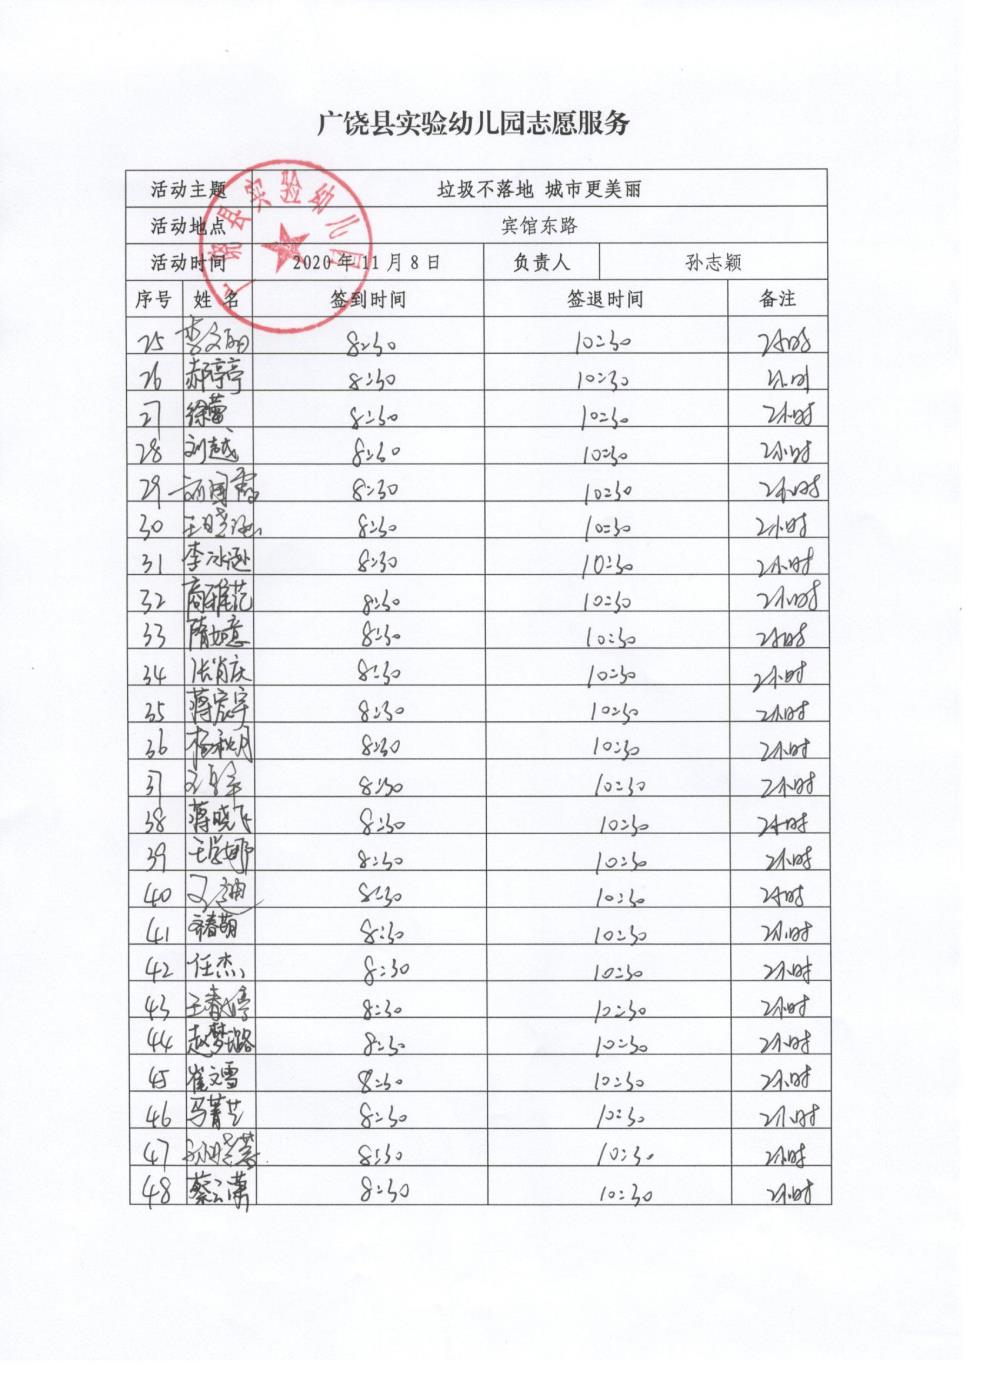 广饶县实验幼儿园志愿服务
活动主题 垃圾不落地 城市更美丽
活动地点 宾馆东路
活动时间 2020年11月8日 负责人 孙志颖
广饶县实验幼儿园
序号 姓名 签到时间 签退时间 备注
25 8:30 10:30 2小时
26 郝婷亭 8:30 10:30 2小时
27 徐蕾 8:30 10:30 2小时
28 刘越 8:30 10:30 2小时
29 8:30 10:30 2小时
30 8:30 10:30 2小时
31 李冰逊 8:30 10:30 2小时
32 商雅范 8:30 10:30 2小时
33 隋如意 8:30 10:30 2小时
34 张肖庆 8:30 10:30 2小时
35 蒋宸宇 8:30 10:30 2小时
36 杨秋月 8:30 10:30 2小时
37 8:30 10:30 2小时
38 蒋晓飞 8:30 10:30 2小时
39 8:30 10:30 2小时
40 8:30 10:30 2小时
41 春萌 8:30 10:30 2小时
42 任杰 8:30 10:30 2小时
43 王春婷 8:30 10:30 2小时
44 赵梦璐 8:30 10:30 2小时
45 崔文雪 8:30 10:30 2小时
46 马菁芝 8:30 10:30 2小时
47 8:30 10:30 2小时
48 蔡云潇 8:30 10:30 2小时